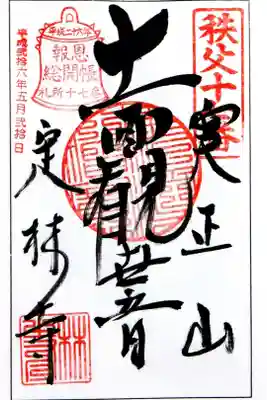 秩父十七番
実正山
十一面観世音
定林寺
平成二十六年
報恩
総開帳
札所十七番
平成弐拾六年五月弐拾日